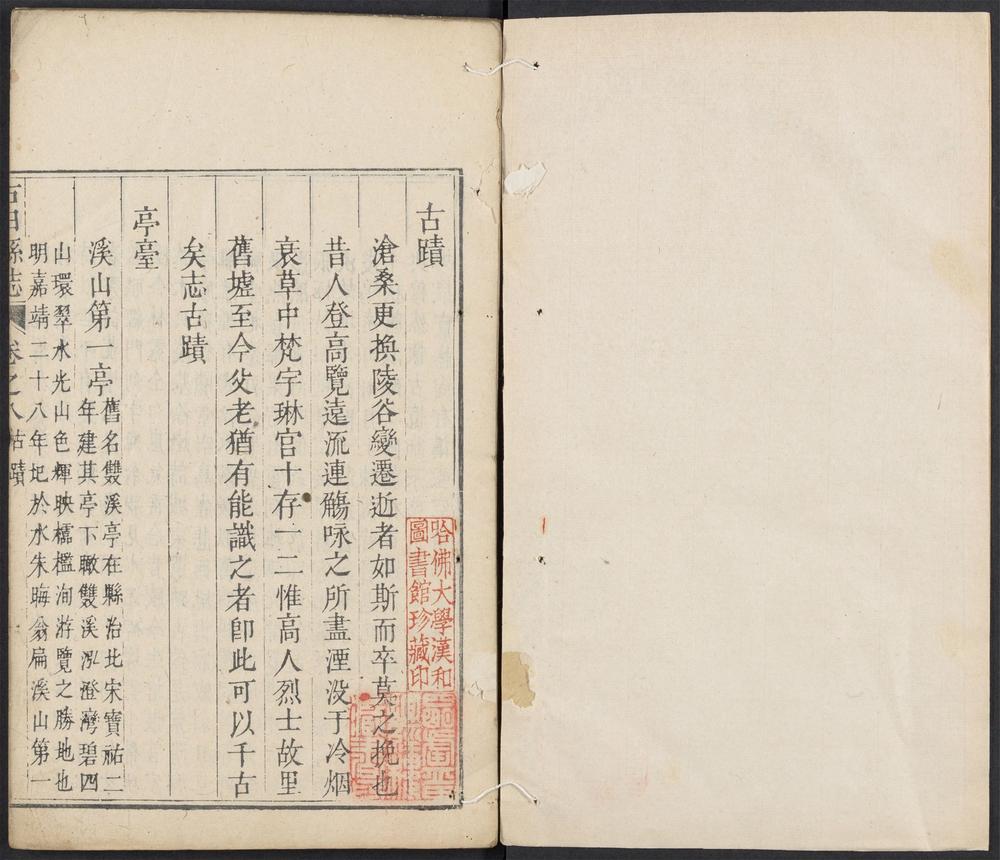 古蹟
滄桑更換陵谷變遷逝者如斯而卒莫之挽也
昔人登高覽遠流連觴咏之所盡湮没于冷烟
衰草中梵宇琳宫十存一二惟高人烈士故里
舊墟至今父老猶有能識之者卽此可以千古
矣志古蹟
亭臺
溪山第一亭
舊名雙溪亭在縣治北宋寶祐二
年建其亭下瞰雙溪泓澄灣碧四
山環翠水光山色輝映櫺檻洵游覽之勝地也
明嘉靖二十八年圮於水朱晦翁扁溪山第一
古田縣志
卷之八
古蹟
哈佛大學漢和
圖書館珍藏印